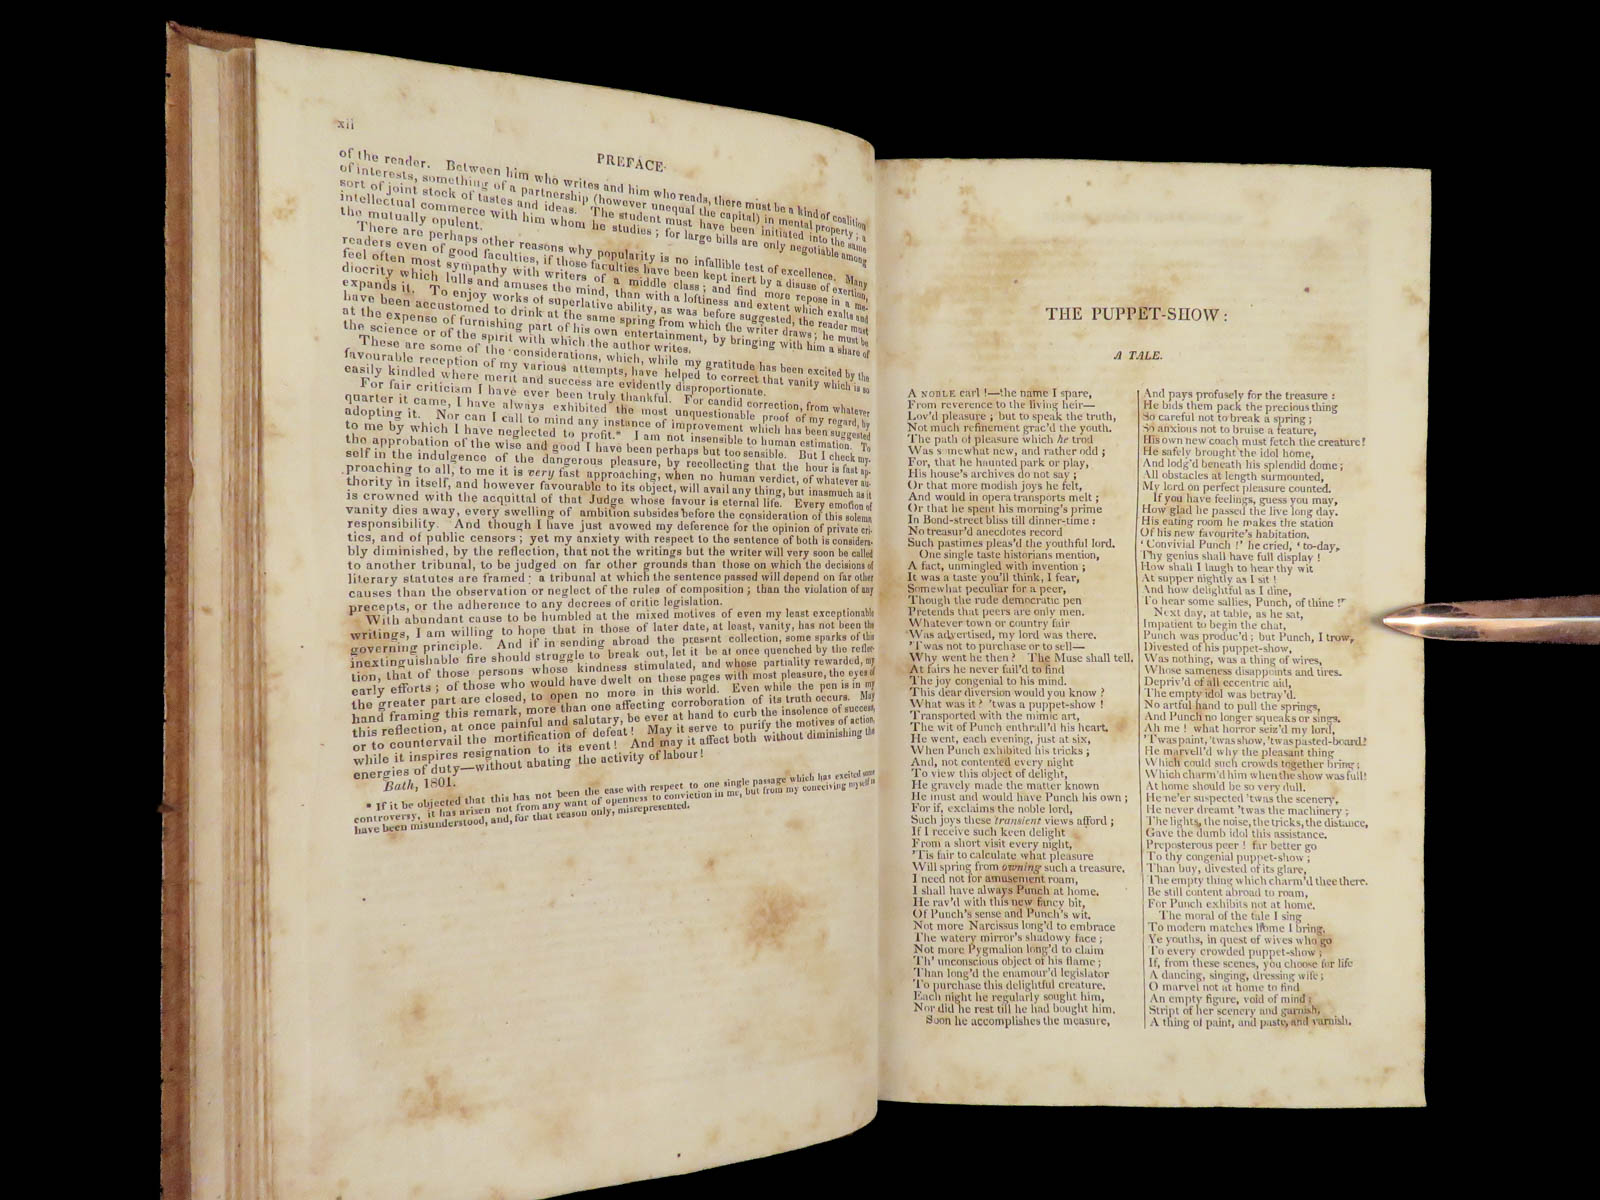 xii
PREFACE.
of the reader. Between him who writes and him who reads, there must be a kind of coalition
of interests, something of a partnership (however unequal the capital) in mental property; a
sort of joint stock of tastes and ideas. The student must have been initiated into the same
intellectual commerce with him whom he studies; for large bills are only negotiable among
the mutually opulent.
There are perhaps other reasons why popularity is no infallible test of excellence. Many
readers even of good faculties, if those faculties have been kept inert by a disuse of exertion,
feel often most sympathy with writers of a middle class; and find more repose in a me-
diocrity which lulls and amuses the mind, than with a loftiness and extent which exalts and
expands it. To enjoy works of superlative ability, as was before suggested, the reader must
have been accustomed to drink at the same spring from which the writer draws; he must be
at the expense of furnishing part of his own entertainment, by bringing with him a share of
the science or of the spirit with which the author writes.
These are some of the considerations, which, while my gratitude has been excited by the
favourable reception of my various attempts, have helped to correct that vanity which is so
easily kindled where merit and success are evidently disproportionate.
For fair criticism I have ever been truly thankful. For candid correction, from whatever
quarter it came, I have always exhibited the most unquestionable proof of my regard, by
adopting it. Nor can I call to mind any instance of improvement which has been suggested
to me by which I have neglected to profit.* I am not insensible to human estimation. To
the approbation of the wise and good I have been perhaps but too sensible. But I check my-
self in the indulgence of the dangerous pleasure, by recollecting that the hour is fast ap-
proaching to all, to me it is very fast approaching, when no human verdict, of whatever au-
thority in itself, and however favourable to its object, will avail any thing, but inasmuch as it
is crowned with the acquittal of that Judge whose favour is eternal life. Every emotion of
vanity dies away, every swelling of ambition subsides before the consideration of this solemn
responsibility. And though I have just avowed my deference for the opinion of private cri-
tics, and of public censors; yet my anxiety with respect to the sentence of both is considera-
bly diminished, by the reflection, that not the writings but the writer will very soon be called
to another tribunal, to be judged on far other grounds than those on which the decisions of
literary statutes are framed: a tribunal at which the sentence passed will depend on far other
causes than the observation or neglect of the rules of composition; than the violation of any
precepts, or the adherence to any decrees of critic legislation.
With abundant cause to be humbled at the mixed motives of even my least exceptionable
writings, I am willing to hope that in those of later date, at least, vanity has not been the
governing principle. And if in sending abroad the present collection, some sparks of this
inextinguishable fire should struggle to break out, let it be at once quenched by the reflec-
tion, that of those persons whose kindness stimulated, and whose partiality rewarded, my
early efforts; of those who would have dwelt on these pages with most pleasure, the eyes of
the greater part are closed, to open no more in this world. Even while the pen is in my
hand framing this remark, more than one affecting corroboration of its truth occurs. May
this reflection, at once painful and salutary, be ever at hand to curb the insolence of success,
or to countervail the mortification of defeat! May it serve to purify the motives of action,
while it inspires resignation to its event! And may it affect both without diminishing the
energies of duty—without abating the activity of labour!
Bath, 1801.
* If it be objected that this has not been the case with respect to one single passage which has excited some
controversy, it has arisen not from any want of openness to conviction in me, but from my conceiving myself to
have been misunderstood, and, for that reason only, misrepresented.
THE PUPPET-SHOW:
A TALE.
A NOBLE earl!—the name I spare,
From reverence to the living heir—
Lov'd pleasure; but to speak the truth,
Not much refinement grac'd the youth.
The path of pleasure which he trod
Was somewhat new, and rather odd;
For, that he haunted park or play,
His house's archives do not say;
Or that more modish joys he felt,
And would in opera transports melt;
Or that he spent his morning's prime
In Bond-street bliss till dinner-time:
No treasur'd anecdotes record
Such pastimes pleas'd the youthful lord.
One single taste historians mention,
A fact, unmingled with invention;
It was a taste you'll think, I fear,
Somewhat peculiar for a peer,
Though the rude democratic pen
Pretends that peers are only men.
Whatever town or country fair
Was advertised, my lord was there.
'Twas not to purchase or to sell—
Why went he then? The Muse shall tell.
At fairs he never fail'd to find
The joy congenial to his mind.
This dear diversion would you know?
What was it? 'twas a puppet-show!
Transported with the mimic art,
The wit of Punch enthrall'd his heart.
He went, each evening, just at six,
When Punch exhibited his tricks;
And, not contented every night
To view this object of delight,
He gravely made the matter known
He must and would have Punch his own;
For if, exclaims the noble lord,
Such joys these transient views afford;
If I receive such keen delight
From a short visit every night,
'Tis fair to calculate what pleasure
Will spring from owning such a treasure.
I need not for amusement roam,
I shall have always Punch at home.
He rav'd with this new fancy bit,
Of Punch's sense and Punch's wit.
Not more Narcissus long'd to embrace
The watery mirror's shadowy face;
Not more Pygmalion long'd to claim
Th' unconscious object of his flame;
Than long'd the enamour'd legislator
To purchase this delightful creature.
Each night he regularly sought him,
Nor did he rest till he had bought him.
Soon he accomplishes the measure,
And pays profusely for the treasure:
He bids them pack the precious thing
So careful not to break a spring;
So anxious not to bruise a feature,
His own new coach must fetch the creature!
He safely brought the idol home,
And lodg'd beneath his splendid dome;
All obstacles at length surmounted,
My lord on perfect pleasure counted.
If you have feelings, guess you may,
How glad he passed the live long day.
His eating room he makes the station
Of his new favourite's habitation.
'Convivial Punch!' he cried, 'to-day,
Thy genius shall have full display!
How shall I laugh to hear thy wit
At supper nightly as I sit!
And how delightful as I dine,
To hear some sallies, Punch, of thine!'
Next day, at table, as he sat,
Impatient to begin the chat,
Punch was produc'd; but Punch, I trow,
Divested of his puppet-show,
Was nothing, was a thing of wires,
Whose sameness disappoints and tires.
Depriv'd of all eccentric aid,
The empty idol was betray'd.
No artful hand to pull the springs,
And Punch no longer squeaks or sings.
Ah me! what horror seiz'd my lord,
'Twas paint, 'twas show, 'twas pasted-board!
He marvell'd why the pleasant thing
Which could such crowds together bring;
Which charm'd him when the show was full!
At home should be so very dull.
He ne'er suspected 'twas the scenery,
He never dreamt 'twas the machinery;
The lights, the noise, the tricks, the distance,
Gave the dumb idol this assistance.
Preposterous peer! far better go
To thy congenial puppet-show;
Than buy, divested of its glare,
The empty thing which charm'd thee there.
Be still content abroad to roam,
For Punch exhibits not at home.
The moral of the tale I sing
To modern matches home I bring,
Ye youths, in quest of wives who go
To every crowded puppet-show;
If, from these scenes, you choose for life
A dancing, singing, dressing wife;
O marvel not at home to find
An empty figure, void of mind;
Stript of her scenery and garnish,
A thing of paint, and paste, and varnish.